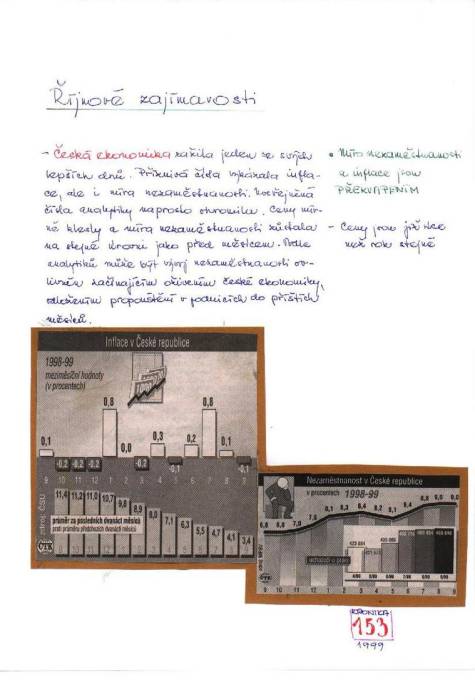 Říjnové zajímavosti
- Česká ekonomika zažila jeden ze svých
lepších dnů. Příznivá čísla vykázala infla-
ce, ale i míra nezaměstnanosti. Zveřejněná
čísla analytiky naprosto ohromila. Ceny mír-
ně klesly a míra nezaměstnanosti zůstala
na stejné úrovni jako před měsícem. Podle
analytiků může být vývoj nezaměstnanosti ov-
livněn začínajícím oživením české ekonomiky,
odložením propouštění v podnicích do příštích
měsíců.
• Míra nezaměstnanosti
a inflace jsou
PŘEKVAPENÍM
- Ceny jsou již více
než rok stejné
Inflace v České republice
1998-99
meziměsíční hodnoty
(v procentech)
0,1 -0,2 -0,2 -0,2 0,8 0,0 -0,1 0,3 -0,1 0,2 0,8 0,1 -0,1
9 10 11 12 1 2 3 4 5 6 7 8 9
11,4 11,2 11,0 10,7 9,8 8,9 8,0 7,1 6,3 5,5 4,7 4,1 3,4
průměr za posledních dvanáct měsíců
proti průměru předchozích dvanácti měsíců
zdroj: ČSÚ
ČTK
Nezaměstnanost v České republice
v procentech 1998-99
6,8 6,8 7,0 7,5 8,1 8,3 8,4 8,2 8,1 8,4 8,8 9,0 9,0
uchazeči o práci
4/99 5/99 6/99 7/99 8/99 9/99
ČTK
9 10 11 12 1 2 3 4 5 6 7 8 9
KRONIKA
153
1999